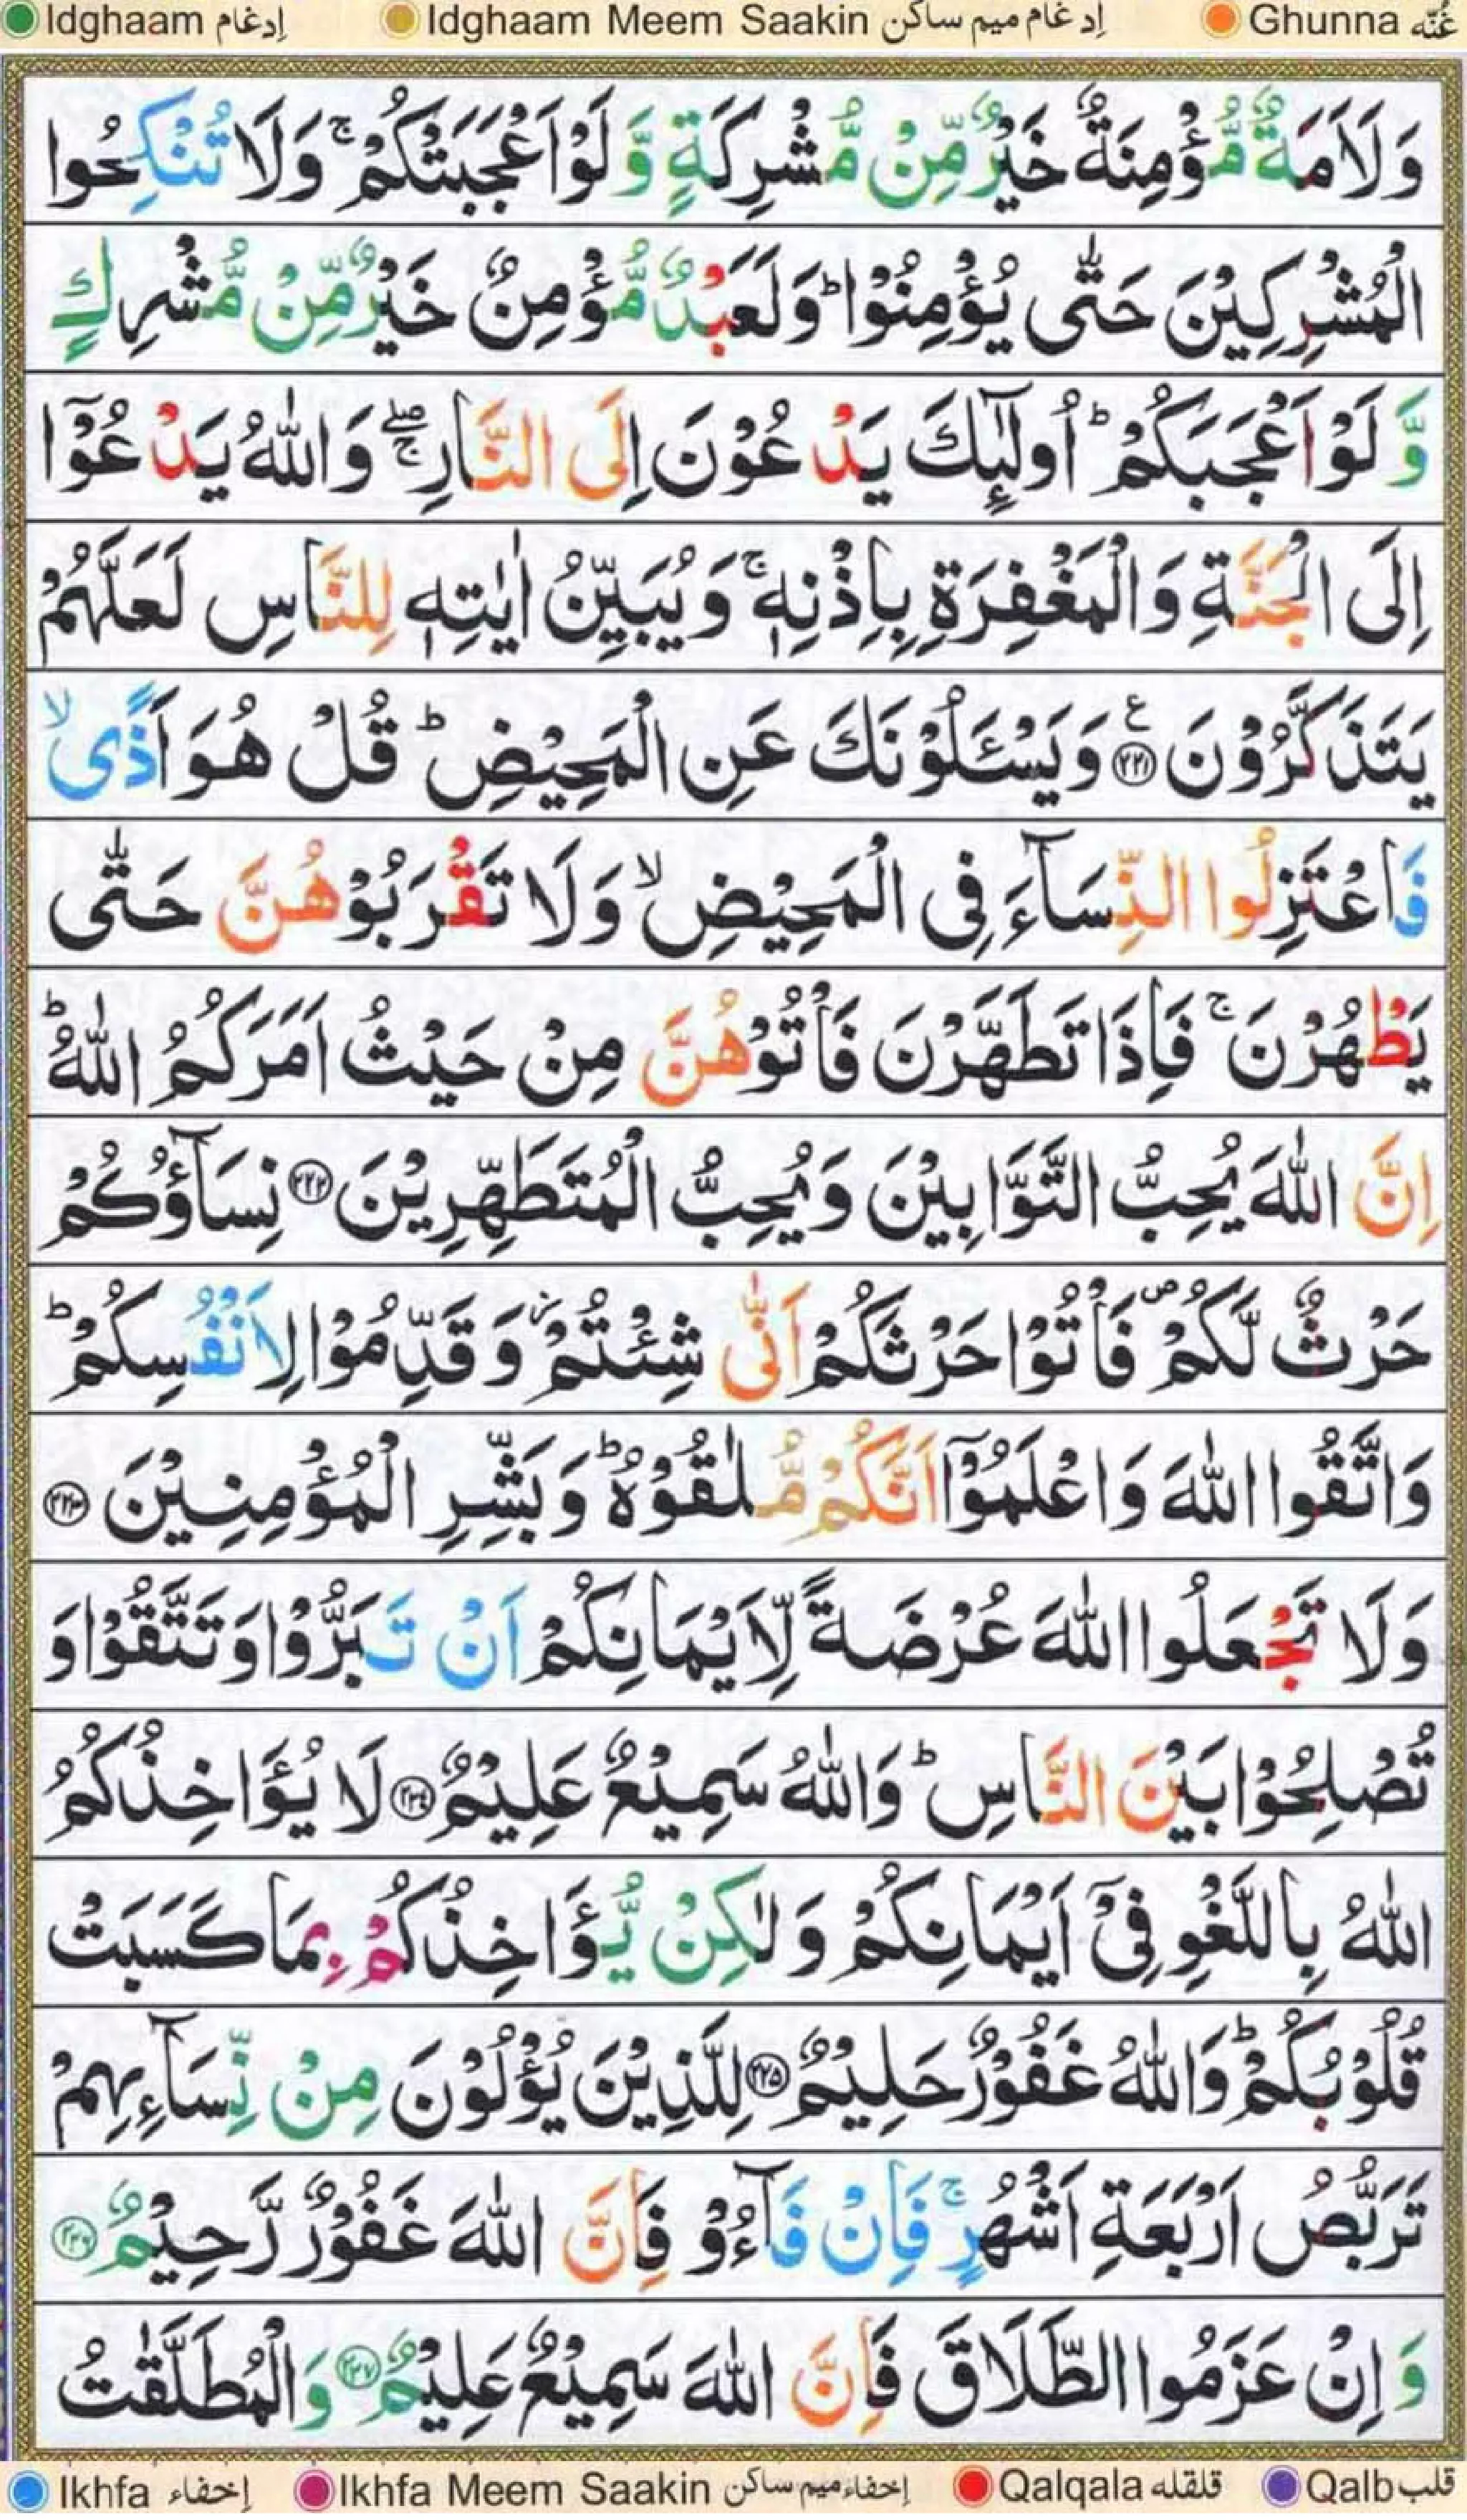 Idghaam إدغام Idghaam Meem Saakin إدغام ميم ساكن Ghunna غُنّه
وَلَاَمَةٌ مُّؤْمِنَةٌ خَيْرٌ مِّنْ مُّشْرِكَةٍ وَّلَوْ اَعْجَبَتْكُمْ ۚ وَلَا تُنْكِحُوا
الْمُشْرِكِيْنَ حَتّٰى يُؤْمِنُوْا ؕ وَلَعَبْدٌ مُّؤْمِنٌ خَيْرٌ مِّنْ مُّشْرِكٍ
وَّلَوْ اَعْجَبَكُمْ ؕ اُولٰٓئِكَ يَدْعُوْنَ اِلَى النَّارِ ۖۚ وَاللّٰهُ يَدْعُوْٓا
اِلَى الْجَنَّةِ وَالْمَغْفِرَةِ بِاِذْنِهٖ ۚ وَيُبَيِّنُ اٰيٰتِهٖ لِلنَّاسِ لَعَلَّهُمْ
يَتَذَكَّرُوْنَ ع ۲۲۱ وَيَسْـَٔلُوْنَكَ عَنِ الْمَحِيْضِ ؕ قُلْ هُوَ اَذًى ۙ
فَاعْتَزِلُوا النِّسَآءَ فِى الْمَحِيْضِ ۙ وَلَا تَقْرَبُوْهُنَّ حَتّٰى
يَطْهُرْنَ ۚ فَاِذَا تَطَهَّرْنَ فَاْتُوْهُنَّ مِنْ حَيْثُ اَمَرَكُمُ اللّٰهُ ؕ
اِنَّ اللّٰهَ يُحِبُّ التَّوَّابِيْنَ وَيُحِبُّ الْمُتَطَهِّرِيْنَ ۲۲۲ نِسَآؤُكُمْ
حَرْثٌ لَّكُمْ ۪ فَاْتُوْا حَرْثَكُمْ اَنّٰى شِئْتُمْ ز وَقَدِّمُوْا لِاَنْفُسِكُمْ ؕ
وَاتَّقُوا اللّٰهَ وَاعْلَمُوْٓا اَنَّكُمْ مُّلٰقُوْهُ ؕ وَبَشِّرِ الْمُؤْمِنِيْنَ ۲۲۳
وَلَا تَجْعَلُوا اللّٰهَ عُرْضَةً لِّاَيْمَانِكُمْ اَنْ تَبَرُّوْا وَتَتَّقُوْا وَ
تُصْلِحُوْا بَيْنَ النَّاسِ ؕ وَاللّٰهُ سَمِيْعٌ عَلِيْمٌ ۲۲۴ لَا يُؤَاخِذُكُمُ
اللّٰهُ بِاللَّغْوِ فِىْٓ اَيْمَانِكُمْ وَلٰكِنْ يُّؤَاخِذُكُمْ بِمَا كَسَبَتْ
قُلُوْبُكُمْ ؕ وَاللّٰهُ غَفُوْرٌ حَلِيْمٌ ۲۲۵ لِلَّذِيْنَ يُؤْلُوْنَ مِنْ نِّسَآءِهِمْ
تَرَبُّصُ اَرْبَعَةِ اَشْهُرٍ ۚ فَاِنْ فَآءُوْ فَاِنَّ اللّٰهَ غَفُوْرٌ رَّحِيْمٌ ۲۲۶
وَاِنْ عَزَمُوا الطَّلَاقَ فَاِنَّ اللّٰهَ سَمِيْعٌ عَلِيْمٌ ۲۲۷ وَالْمُطَلَّقٰتُ
Ikhfa إخفاء Ikhfa Meem Saakin إخفاء ميم ساكن Qalqala قلقله Qalb قلب